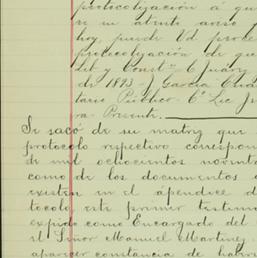 protocolización á que
se su atento aviso
hoy, puede Vd proce
protocolización de que
Lib y Const. C Juarez
de 1893 J García
tario Público C. Lic
ra Presente.
Se sacó de su matriz que
protocolo respectivo correspon
de mil ochocientos novent
como de los documentos
existen en el apéndice d
tocolo este primer testimo
expido como Encargado del
el Señor Manuel Martinez
aparecer constancia de haber